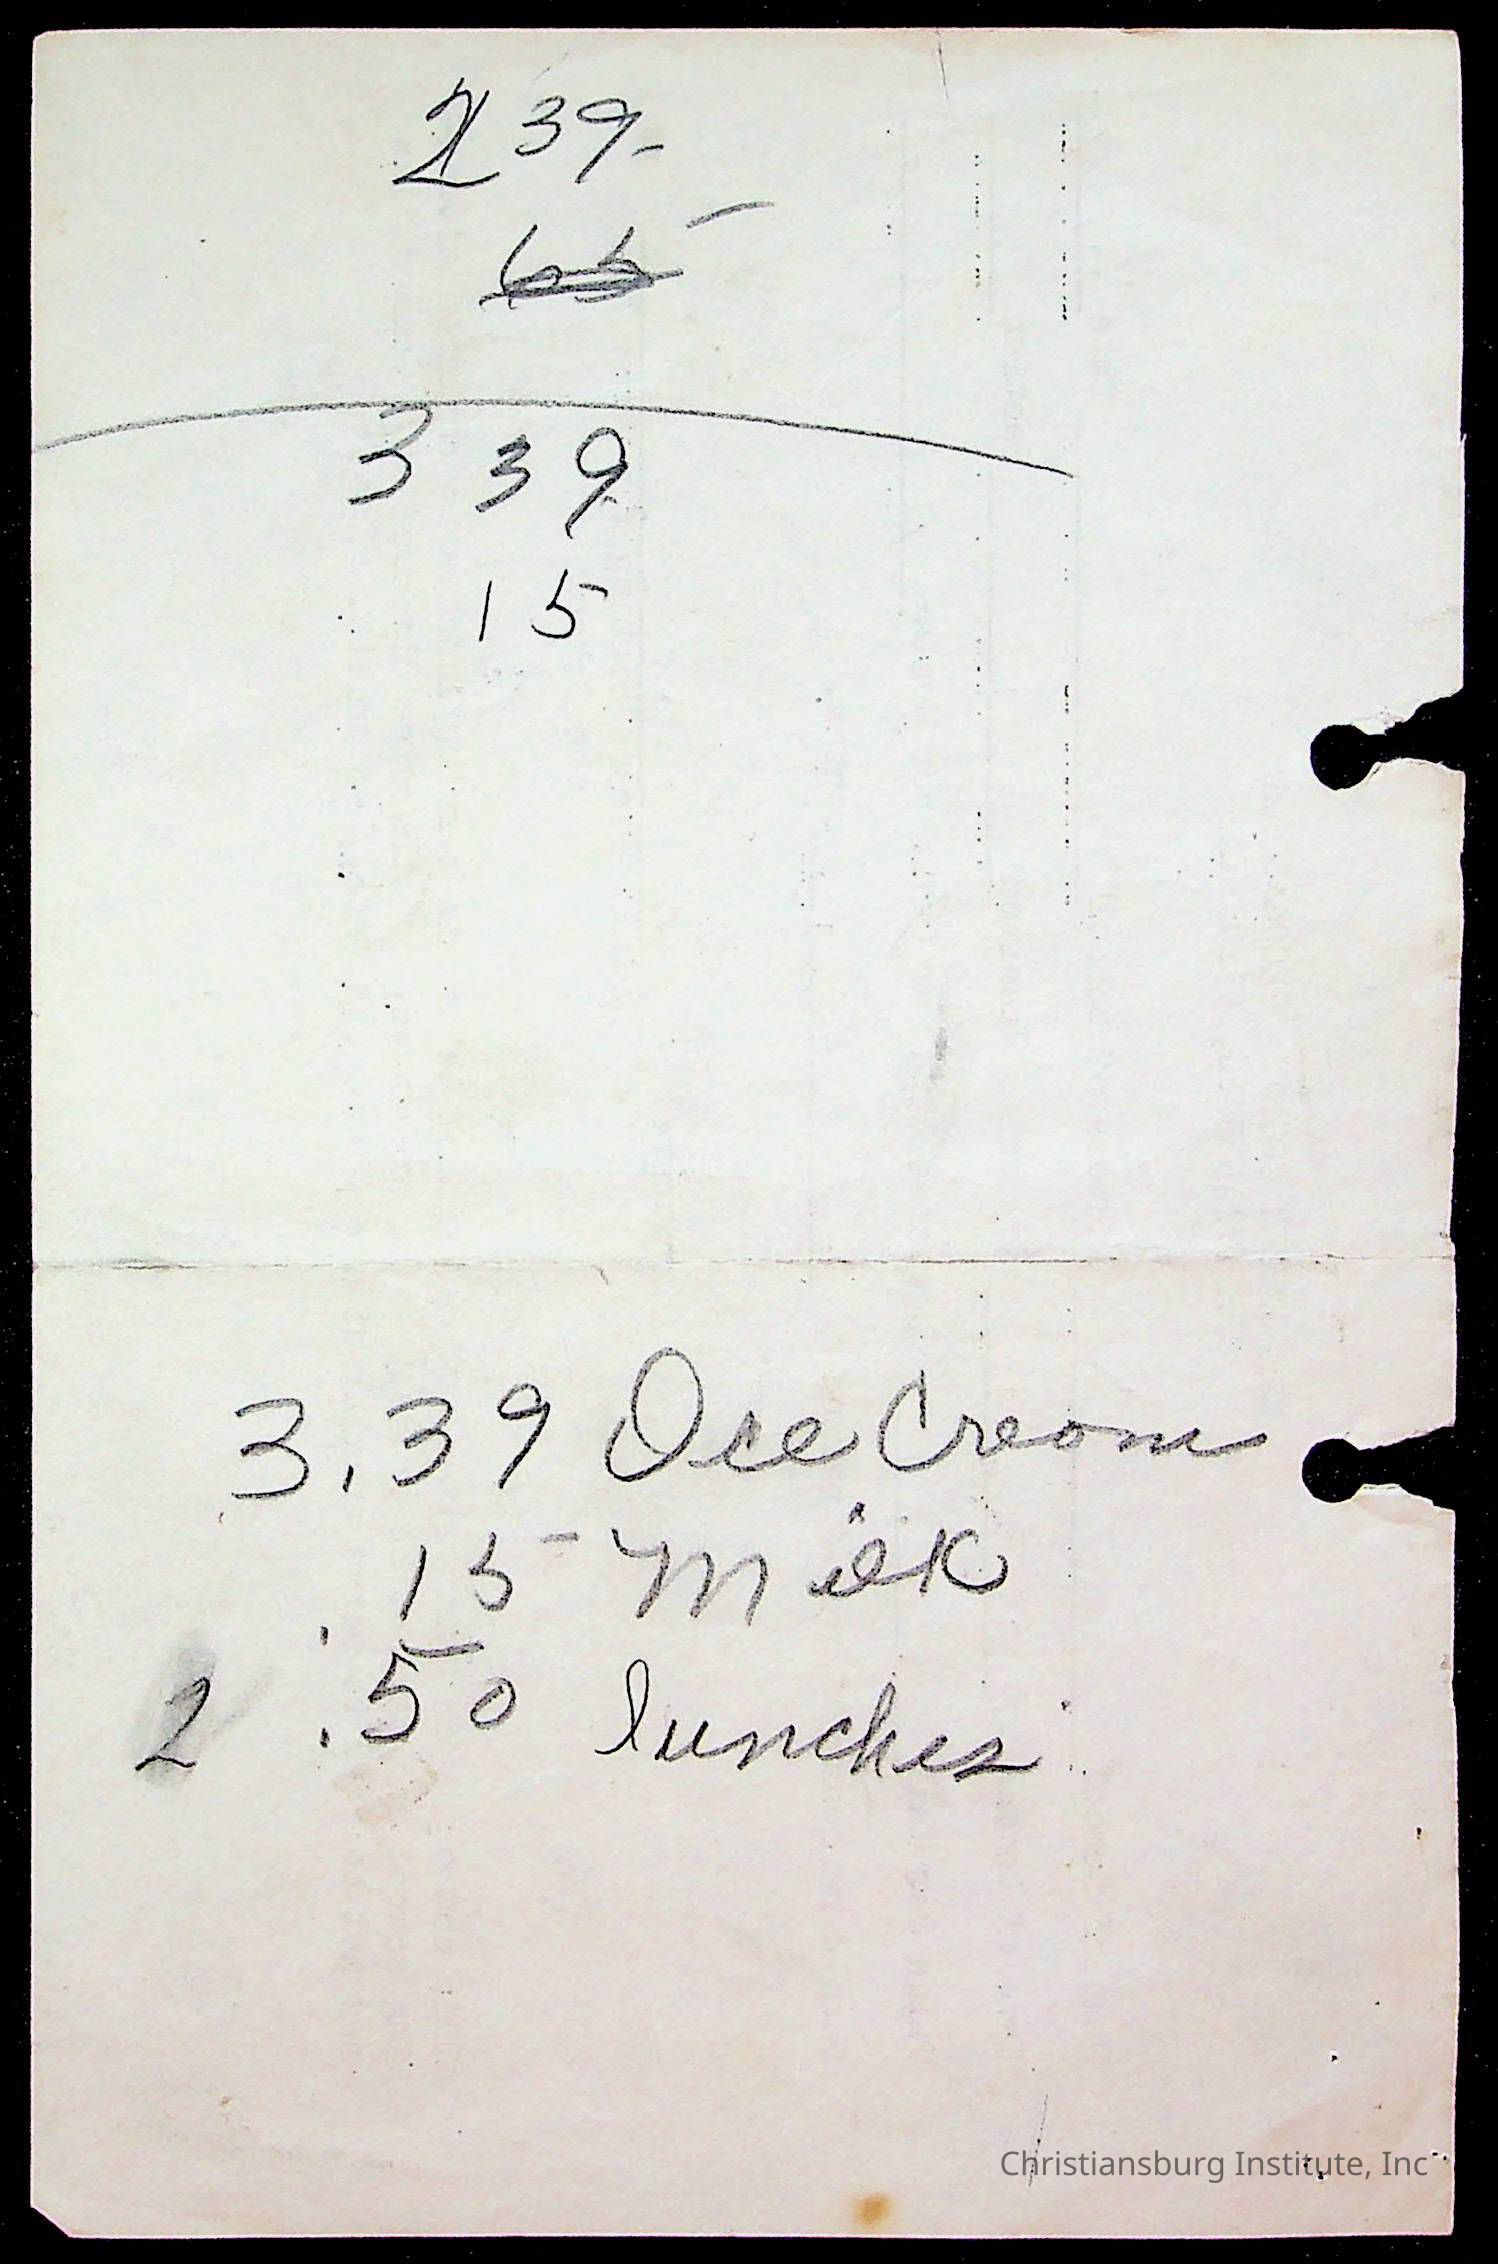 2 39
65
3 39
15
3.39 Ice Cream
.15 Milk
2 .50 lunches
Christiansburg Institute, Inc